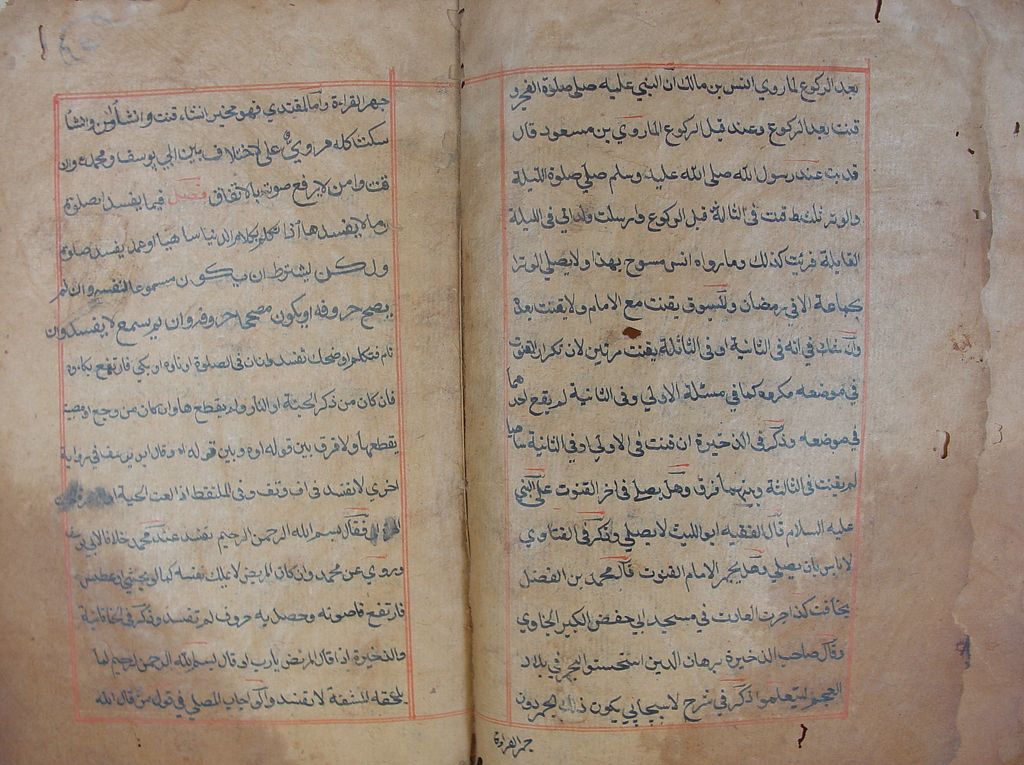 بعد الركوع لما روي انس بن مالك ان النبي عليه صلي صلوة الفجر و
قنت بعد الركوع وعند قبل الركوع لما روي بن مسعود قال
قد بت عند رسول الله صلى الله عليه وسلم صلي صلوة الليلة
والوتر ثلث قنت في الثالثة قبل الركوع وارسلت في الليلة
القابلة فرئيت كذلك وما رواه انس منسوخ بهذا ولا يصلي الوتر
بجماعة الا في رمضان والمسبوق يقنت مع الامام ولا يقنت بعده
وان شك في انه في الثانية او في الثالثة يقنت مرتين لان تكرار القنوت
في موضعه مكروه كما في مسئلة الاولي وفي الثانية لم يقع احدهما
في موضعه وذكر في الذخيرة ان قنت في الاولي او في الثانية ساهيا
لم يقنت في الثالثة وبينهما فرق وهل يصلي في اخر القنوت على النبي
عليه السلام قال الفقيه ابو الليث لا يصلي وذكر في الفتاوي
لا باس بان يصلي وهل يجهر الامام القنوت قال محمد بن الفضل
يخافت كذا جرت العادت في مسجد ابي حفص الكبير
وقال صاحب الذخيرة برهان الدين استحسنوا الجهر في بلاد
العجم ليتعلموا وذكر في شرح لاسبيجابي يكون ذلك الجهر دون
جهر القراءة
جهر القراءة واما المقتدي فهو مخير ان شاء قنت وان شاء امن وان شاء
سكت كله مروي على الاختلاف بين ابي يوسف ومحمد وان
قنت وامن لا يرفع صوته بالاتفاق فصل فيما يفسد الصلوة
وما لا يفسدها اذا تكلم بكلام الدنيا ساهيا او عمدا يفسد صلوته
ولكن ليشترط ان يكون مسموعا لنفسه وان لم
يصح حروفه او يكون مصححا حروفه وان لم يسمع لا يفسد وان
نام فتكلم او ضحك تفسد وان ان في الصلوة او تاوه او بكي فارتفع بكاءه
فان كان من ذكر الجنة او النار ولم يقطعها وان كان من وجع او مصيبة
يقطعها ولا فرق بين قوله اوه وبين قوله اه وقال ابو يوسف في رواية
اخري لا تفسد في اف وتف وفي الملتقط اذا لعت الحية او
فقال بسم الله الرحمن الرحيم تفسد عند محمد خلافا لابي يوسف
وروي عن محمد وان كان المريض لا يملك نفسه كما لو تجشي او عطس
فارتفع صوته وحصل به حروف لم تفسد وذكر في الخاقانية
والذخيرة اذا قال المريض يا رب او قال بسم الله الرحمن الرحيم لما
يلحقه المشقة لا تفسد ولو اجاب المصلي في قول من قال الله